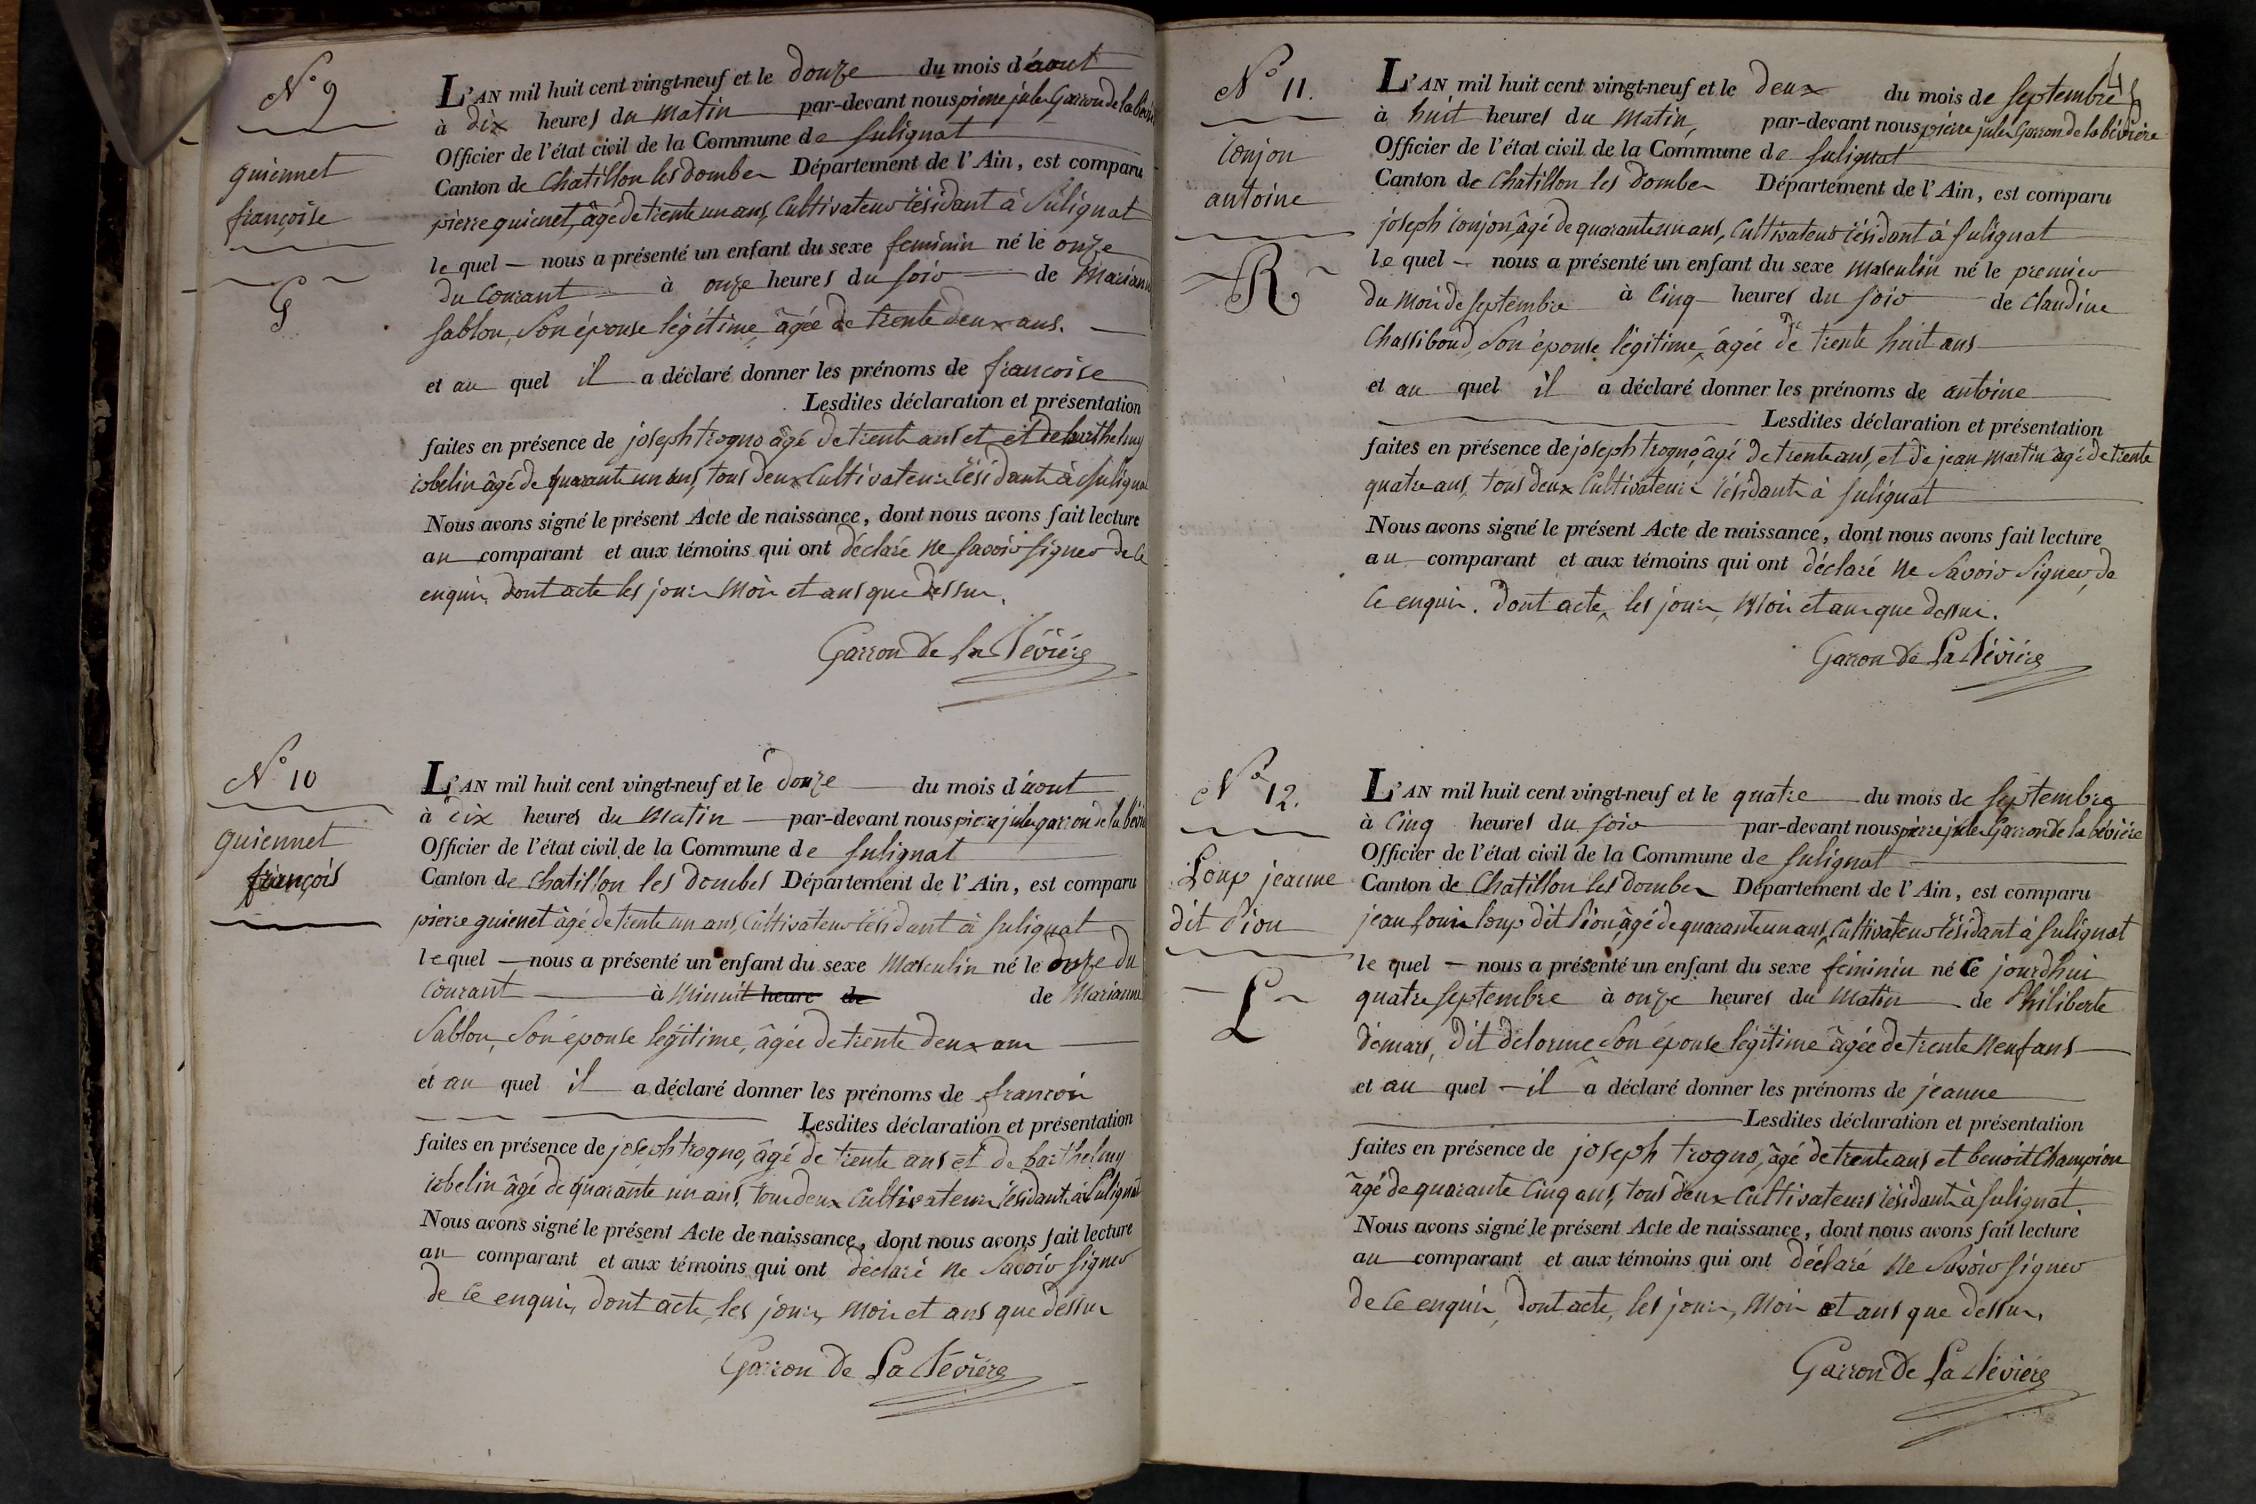 N° 9
guiennet
françoise
G
L'AN mil huit cent vingt-neuf et le douze du mois d'aout
à dix heures du matin par-devant nous pierre jules Garron de la bévi
Officier de l'état civil de la Commune de sulignat
Canton de Chatillon les dombes Département de l'Ain, est comparu
pierre guienet, âgé de trente un ans, Cultivateur résidant à Sulignat
le quel — nous a présenté un enfant du sexe feminin né le onze
du Courant à onze heures du soir de Mariann
sablon, Son épouse légitime, âgée de trente deux ans.
et au quel il a déclaré donner les prénoms de francoise
Lesdites déclaration et présentation
faites en présence de joseph trogno âgé de trente ans et et de barthelmy
iobelin âgé de quarante un ans, tous deux Cultivateurs résidants à Suligna
Nous avons signé le présent Acte de naissance, dont nous avons fait lecture
au comparant et aux témoins qui ont déclaré ne savoir signer de ce
enquis. dont acte les jours Mois et ans que dessus.
Garron de La Bévière
N° 10
guiennet
françois
L'AN mil huit cent vingt-neuf et le douze du mois d'aout
à dix heures du Matin par-devant nous pierre jules garron de la bévi
Officier de l'état civil de la Commune de sulignat
Canton de Chatillon les dombes Département de l'Ain, est comparu
pierre guienet âgé de trente un ans, Cultivateur résidant à sulignat
le quel — nous a présenté un enfant du sexe Masculin né le onze du
Courant à Minuit heure de de Marianne
Sablon, Son épouse légitime, âgée de trente deux ans
et au quel il a déclaré donner les prénoms de francois
Lesdites déclaration et présentation
faites en présence de joseph trogno, âgé de trente ans et de barthelmy
iobelin âgé de quarante un ans, tous deux Cultivateurs, résidants à Sulignat
Nous avons signé le présent Acte de naissance, dont nous avons fait lecture
au comparant et aux témoins qui ont déclaré ne Savoir signer
de ce enquis, dont acte, les jours, mois et ans que dessus
Garron de La Bévière
N° 11.
Conjon
antoine
R
L'AN mil huit cent vingt-neuf et le deux du mois de septembre
à huit heures du matin, par-devant nous pierre jules Garron de la bévière
Officier de l'état civil de la Commune de sulignat
Canton de Chatillon les Dombes Département de l'Ain, est comparu
joseph conjon, âgé de quarante un ans, Cultivateur résidant à sulignat
le quel — nous a présenté un enfant du sexe masculin né le premier
du Mois de Septembre à Cinq heures du soir de Claudine
Chassiboud, Son épouse légitime, âgée de trente huit ans
et au quel il a déclaré donner les prénoms de antoine
Lesdites déclaration et présentation
faites en présence de joseph trogno, âgé de trente ans, et de jean Martin agé de trente
quatre ans, tous deux Cultivateurs résidants à sulignat
Nous avons signé le présent Acte de naissance, dont nous avons fait lecture
au comparant et aux témoins qui ont déclaré ne Savoir Signer, de
Ce enquis. Dont acte, les jours, Mois et ans que dessus.
Garron de La Bévière
N° 12.
Loup jeanne
dit dion
L
L'AN mil huit cent vingt-neuf et le quatre du mois de septembre
à Cinq heures du soir par-devant nous pierre jules Garron de la bévière
Officier de l'état civil de la Commune de sulignat
Canton de Chatillon les dombes Département de l'Ain, est comparu
jean Louis loup dit dion, âgé de quarante un ans, Cultivateur résidant à Sulignat
le quel — nous a présenté un enfant du sexe féminin né Ce jourdhui
quatre septembre à onze heures du Matin de Philiberte
démars, dit delorme Son épouse légitime âgée de trente neuf ans
et au quel il a déclaré donner les prénoms de jeanne
Lesdites déclaration et présentation
faites en présence de joseph trogno, âgé de trente ans et benoit Champion
âgé de quarante Cinq ans, tous deux Cultivateurs résidants à sulignat.
Nous avons signé le présent Acte de naissance, dont nous avons fait lecture
au comparant et aux témoins qui ont déclaré ne Savoir signer
de Ce enquis, dont acte, les jours, Mois et ans que dessus.
Garron de La Bévière